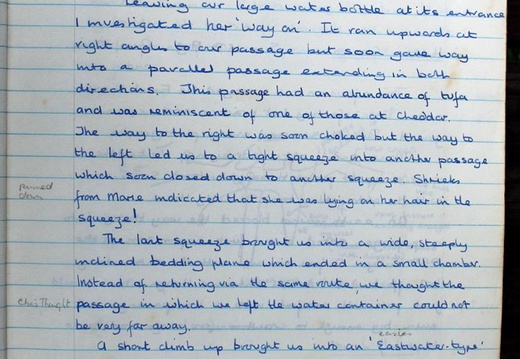 Leaving our large water bottle at its entrance
I investigated her 'way on'. It ran upwards at
right angles to our passage but soon gave way
into a parallel passage extending in both
directions. This passage had an abundance of tufa
and was reminiscent of one of those at Cheddar.
The way to the right was soon choked but the way to
the left led us to a tight squeeze into another passage
which soon closed down to another squeeze. Shrieks
pinned down
from Marie indicated that she was lying on her hair in the
squeeze!
The last squeeze brought us into a wide, steeply
inclined bedding plane which ended in a small chamber.
Instead of returning via the same route, we thought the
passage in which we left the water container could not
be very far away.
easier
A short climb up brought us into an 'Eastwater-type'